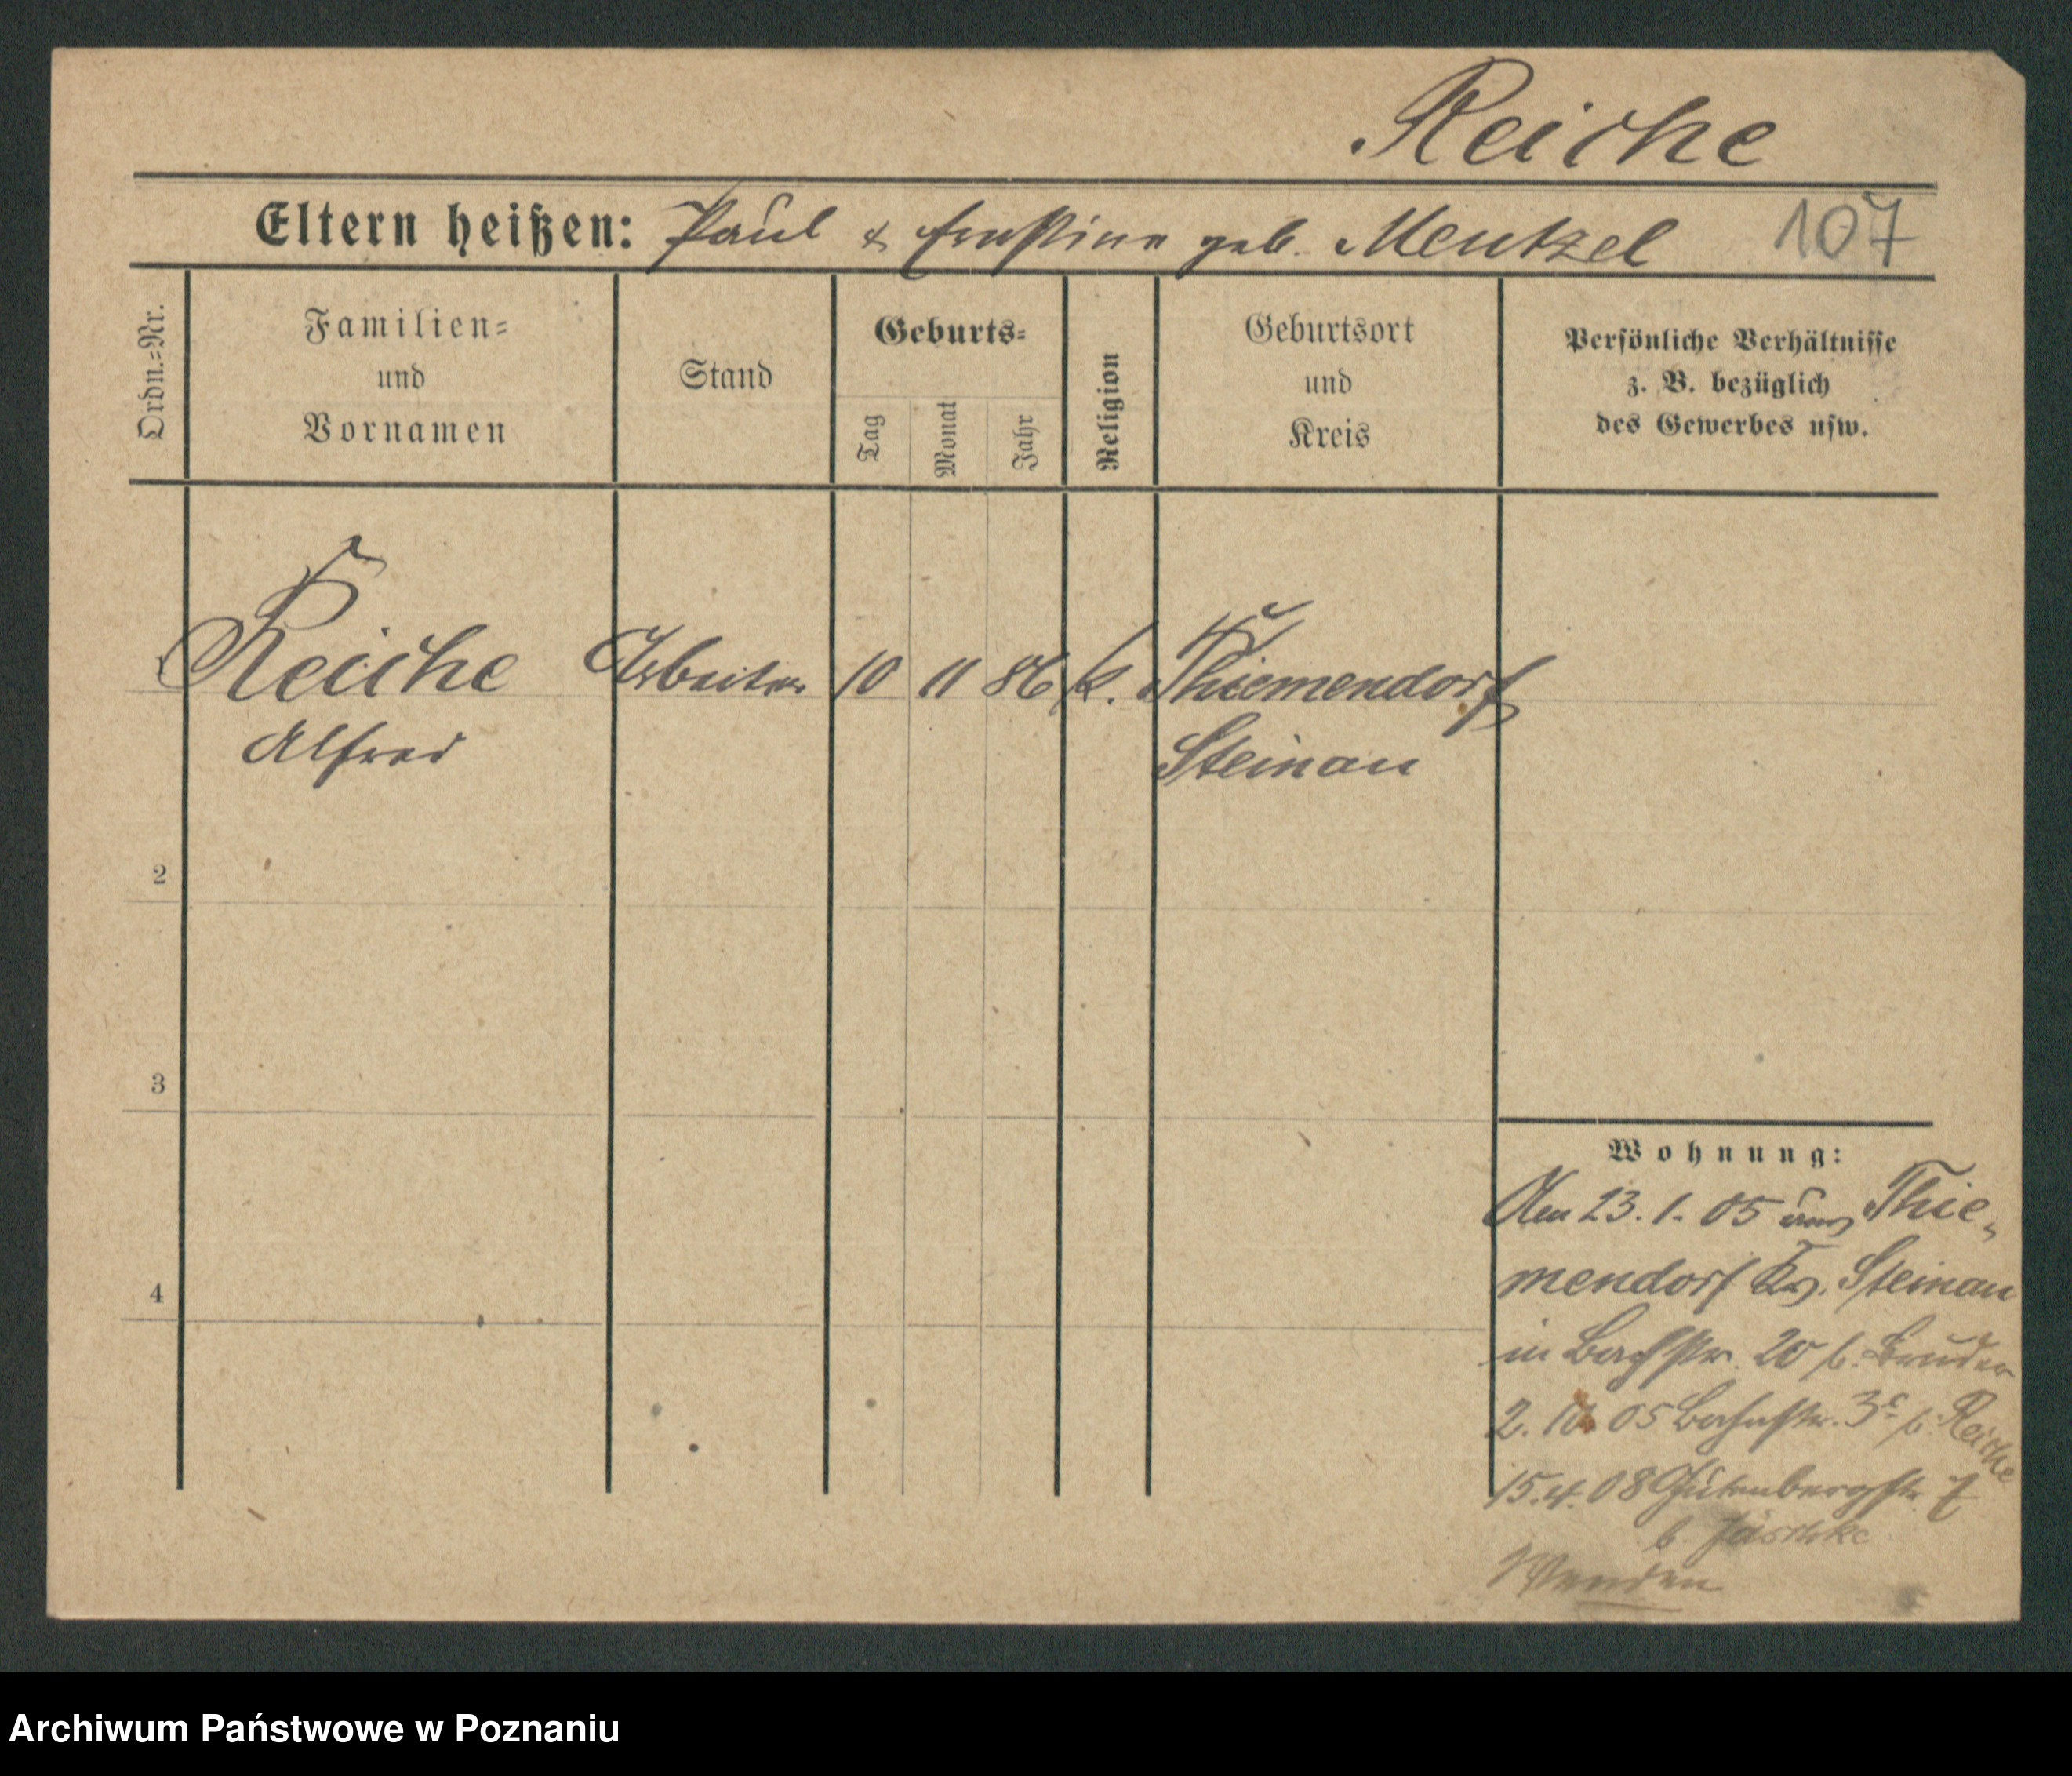 Reiche
Eltern heißen: Paul & Ernstine geb. Mentzel 107
Ordn.=Nr.
Familien=
und
Vornamen
Stand
Geburts=
Tag
Monat
Jahr
Religion
Geburtsort
und
Kreis
Persönliche Verhältnisse
z. B. bezüglich
des Gewerbes usw.
Reiche Arbeiter 10 11 86 k. Thiemendorf
Alfred Steinau
2
3
4
Wohnung:
Am 23. 1. 05 aus Thie=
mendorf Krs. Steinau
in Bachstr. 20 b. Bruder
2. 10. 05 Bahnstr. 3c b. Reiche
15. 4. 08 Gutenbergstr. 7
b. Jäschke
Wenden
Archiwum Państwowe w Poznaniu